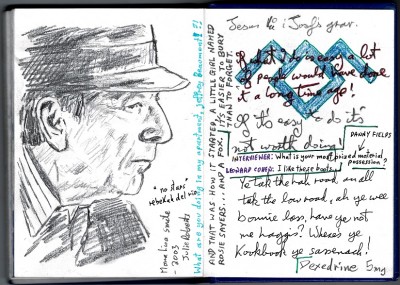 What are you doing in my apartment, Jeffrey Beaumont?!
"no stars"
rebekah del rio
Mona Lisa Smile
- 2003
Julia Roberts
AND THAT WAS HOW IT STARTED, A LITTLE GIRL NAMED
ROSIE SAYERS... AND A FOX. IT'S EASIER TO BURY
THAN TO FORGET.
Jesus
If what I do is easy a lot
of people would have done
it a long time ago!
If it's easy to do it's
not worth doing!
DANNY FIELDS
INTERVIEWER: What is your most prized material
possession?
LEONARD COHEN: I like these boots
Ye tak the high road, an all
tak the low road, ah ye wee
bonnie lass, have ye not
me haggis? Wheres ye
Kookbook ye sassenach!
Dexedrine 5mg